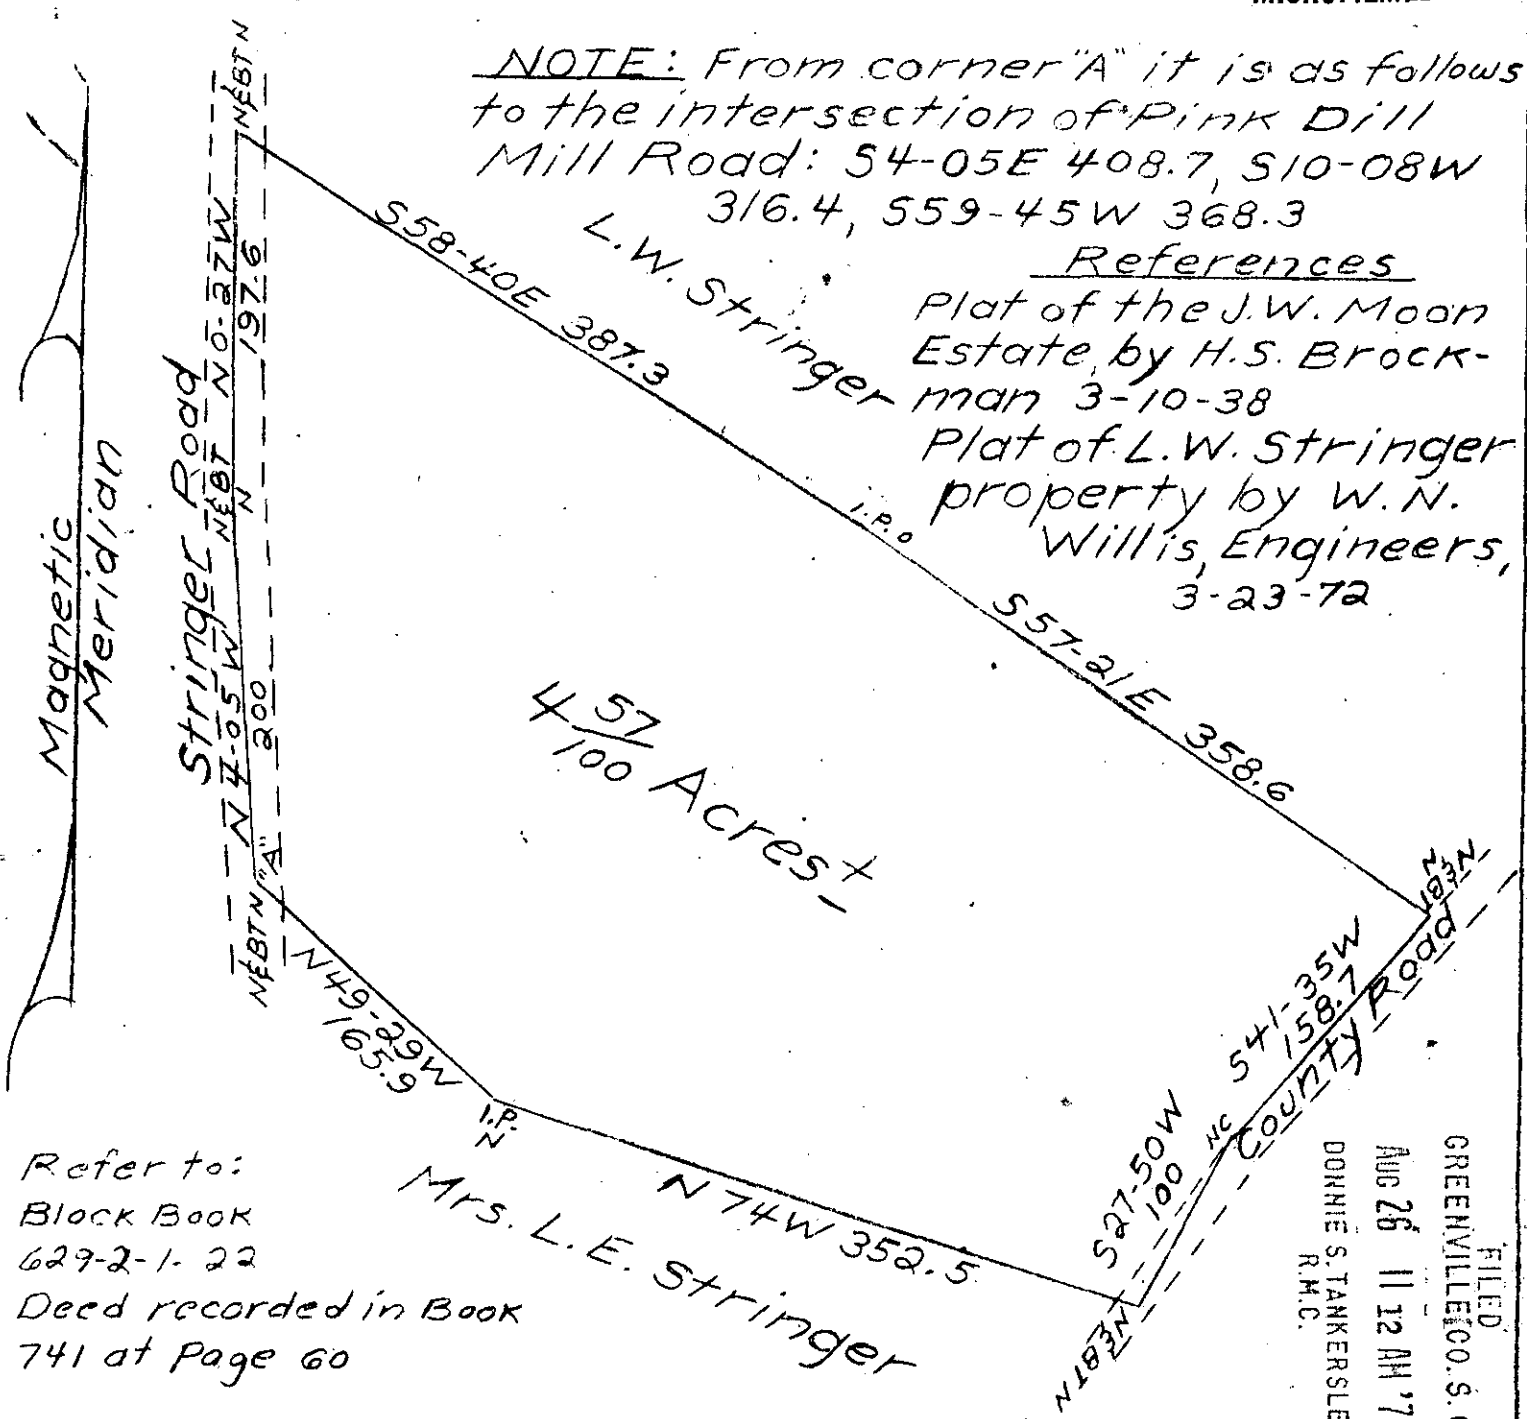 NOTE: From corner "A" it is as follows
to the intersection of Pink Dill
Mill Road: S4-05E 408.7, S10-08W
316.4, S59-45W 368.3
References
Plat of the J.W. Moon
Estate, by H.S. Brock-
man 3-10-38
Plat of L.W. Stringer
property by W.N.
Willis, Engineers,
3-23-72
Magnetic
Meridian
Stringer Road
N&BT N
N0-27W
197.6
N&BT
N
N4-05W
200
"A"
N&BT N
S58-40E 387.3
L.W. Stringer
I.P.O
S57-21E 358.6
4 57/100 Acres ±
N&BT
N
S41-35W
158.7
County Road
NC
S27-50W
100
N&BT N
N49-29W
165.9
I.P.
N
N74W 352.5
Mrs. L.E. Stringer
Refer to:
Block Book
629-2-1-22
Deed recorded in Book
741 at Page 60
FILED
GREENVILLE CO. S.
AUG 26 11 12 AM '7
DONNIE S. TANKERSLE
R.M.C.